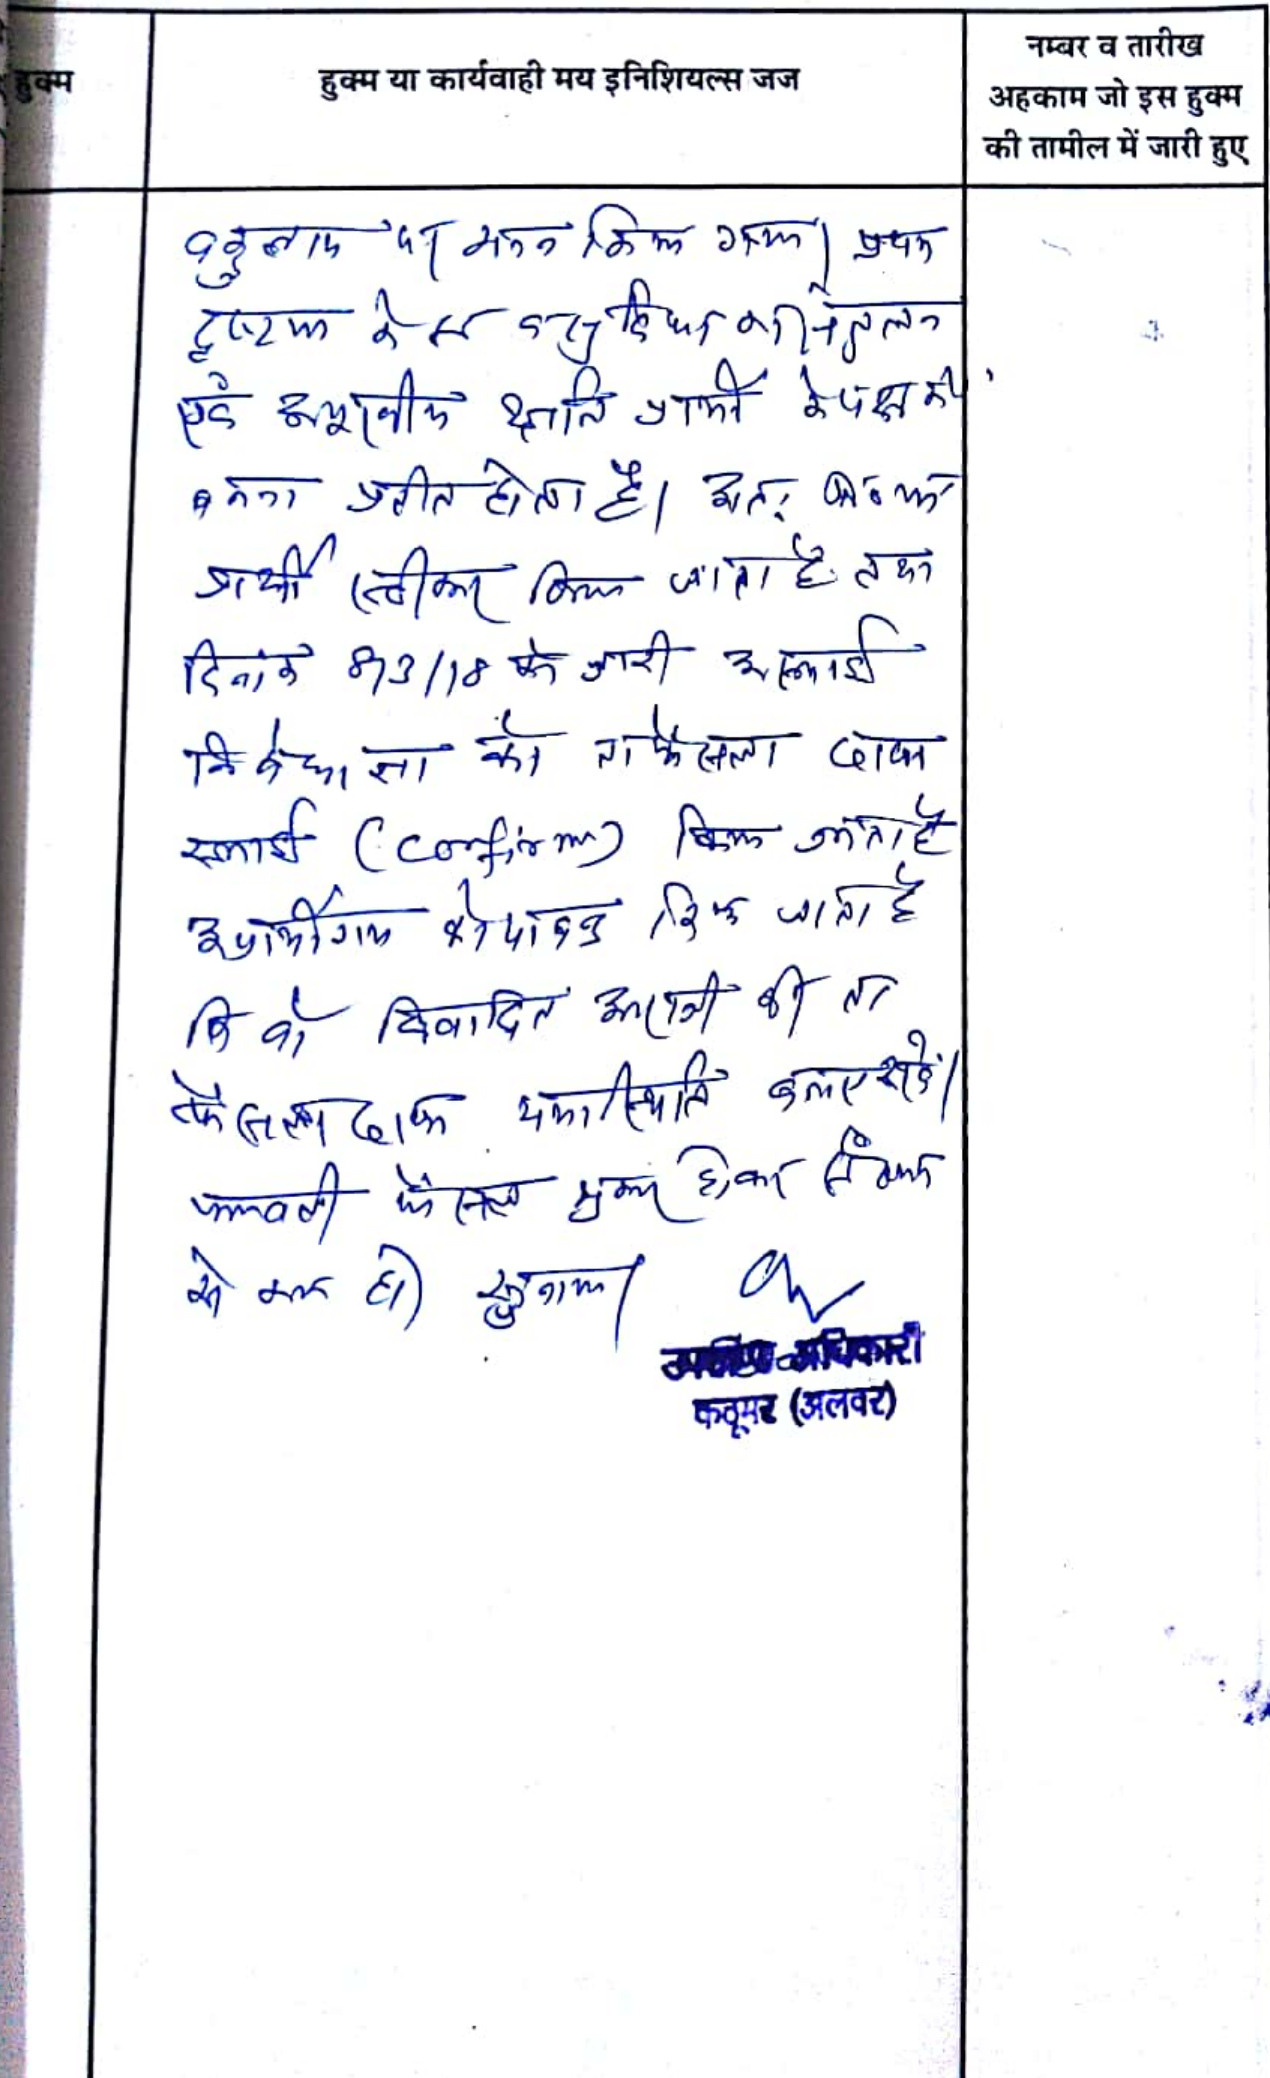 हुक्म
हुक्म या कार्यवाही मय इनिशियल्स जज
नम्बर व तारीख
अहकाम जो इस हुक्म
की तामील में जारी हुए
पर मनन किया गया। प्रथम
दृष्टया केस सुविधा का संतुलन
एवं अपूरणीय क्षति प्रार्थी के पक्ष में
बनना प्रतीत होता है। अतः
प्रार्थी स्वीकार किया जाता है तथा
दिनांक 8/3/18 को जारी अस्थाई
निषेधाज्ञा को ता फैसला दावा
स्थाई (confirm) किया जाता है
अप्रार्थीगण को पाबन्द किया जाता है
कि वो विवादित आराजी की ता
फैसला दावा यथास्थिति बनाए रखें।
पत्रावली फैसल शुमार होकर
से कम हो। सुनाया।
उपखण्ड अधिकारी
कठूमर (अलवर)